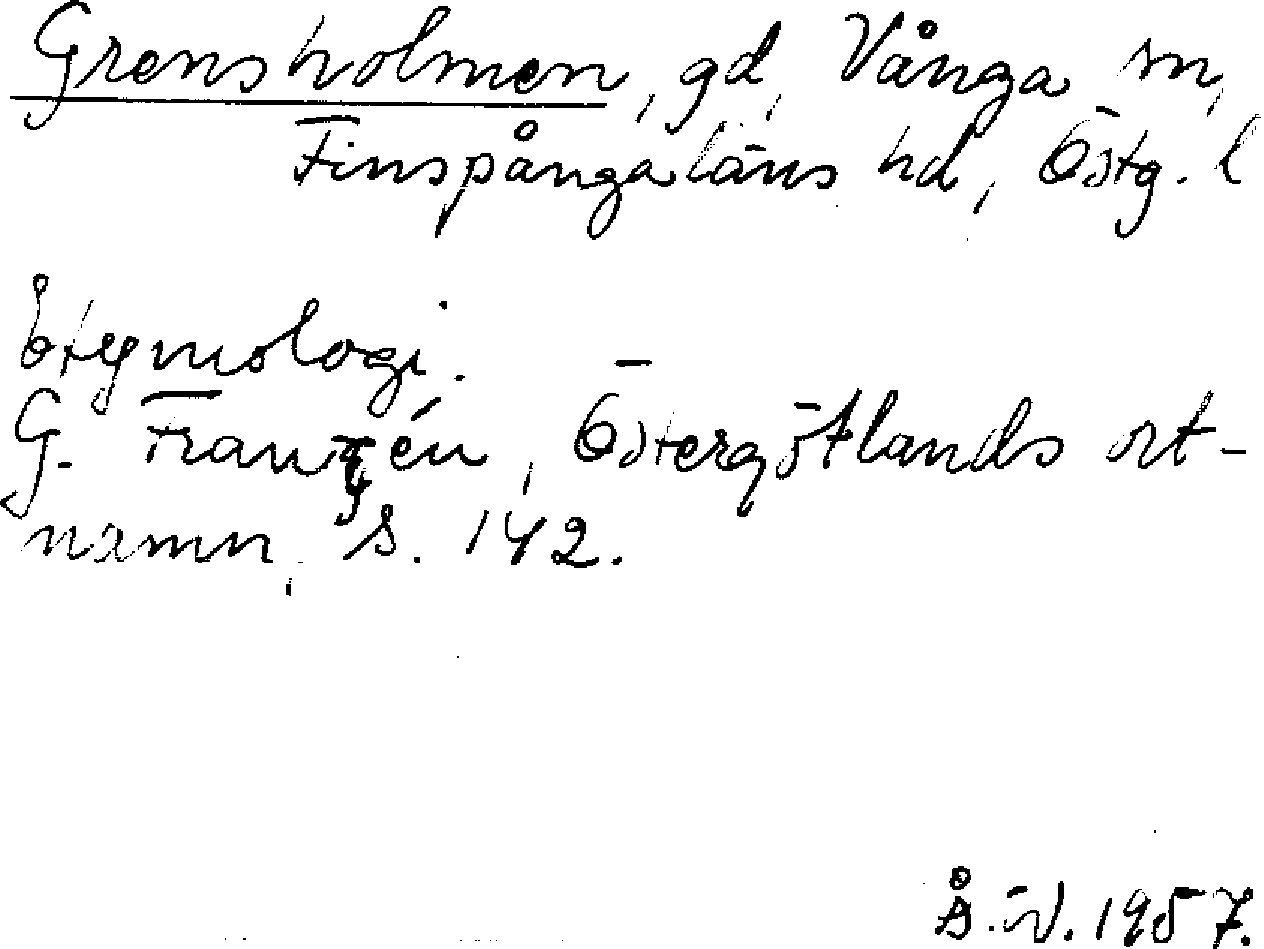 Grensholmen, gd, Vånga sn,
Finspånga läns hd, Östg. l
Etymologi.
G. Franzén, Östergötlands ort-
namn, s. 142.
Å. W. 1957.